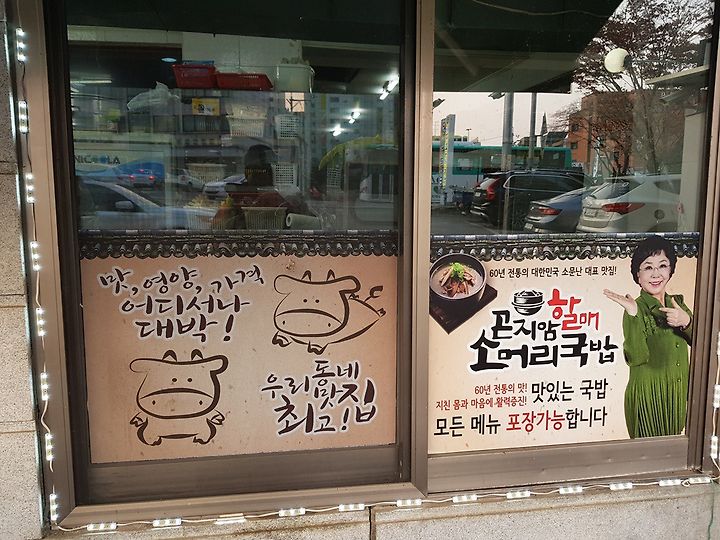 NICOOLA
맛, 영양, 가격
어디서나
대박!
우리동네
최고! 맛집
60년 전통의 대한민국 소문난 대표 맛집!
곤지암할매
소머리국밥
60년 전통의 맛!
지친 몸과 마음에 활력증진!
맛있는 국밥
모든 메뉴 포장가능합니다